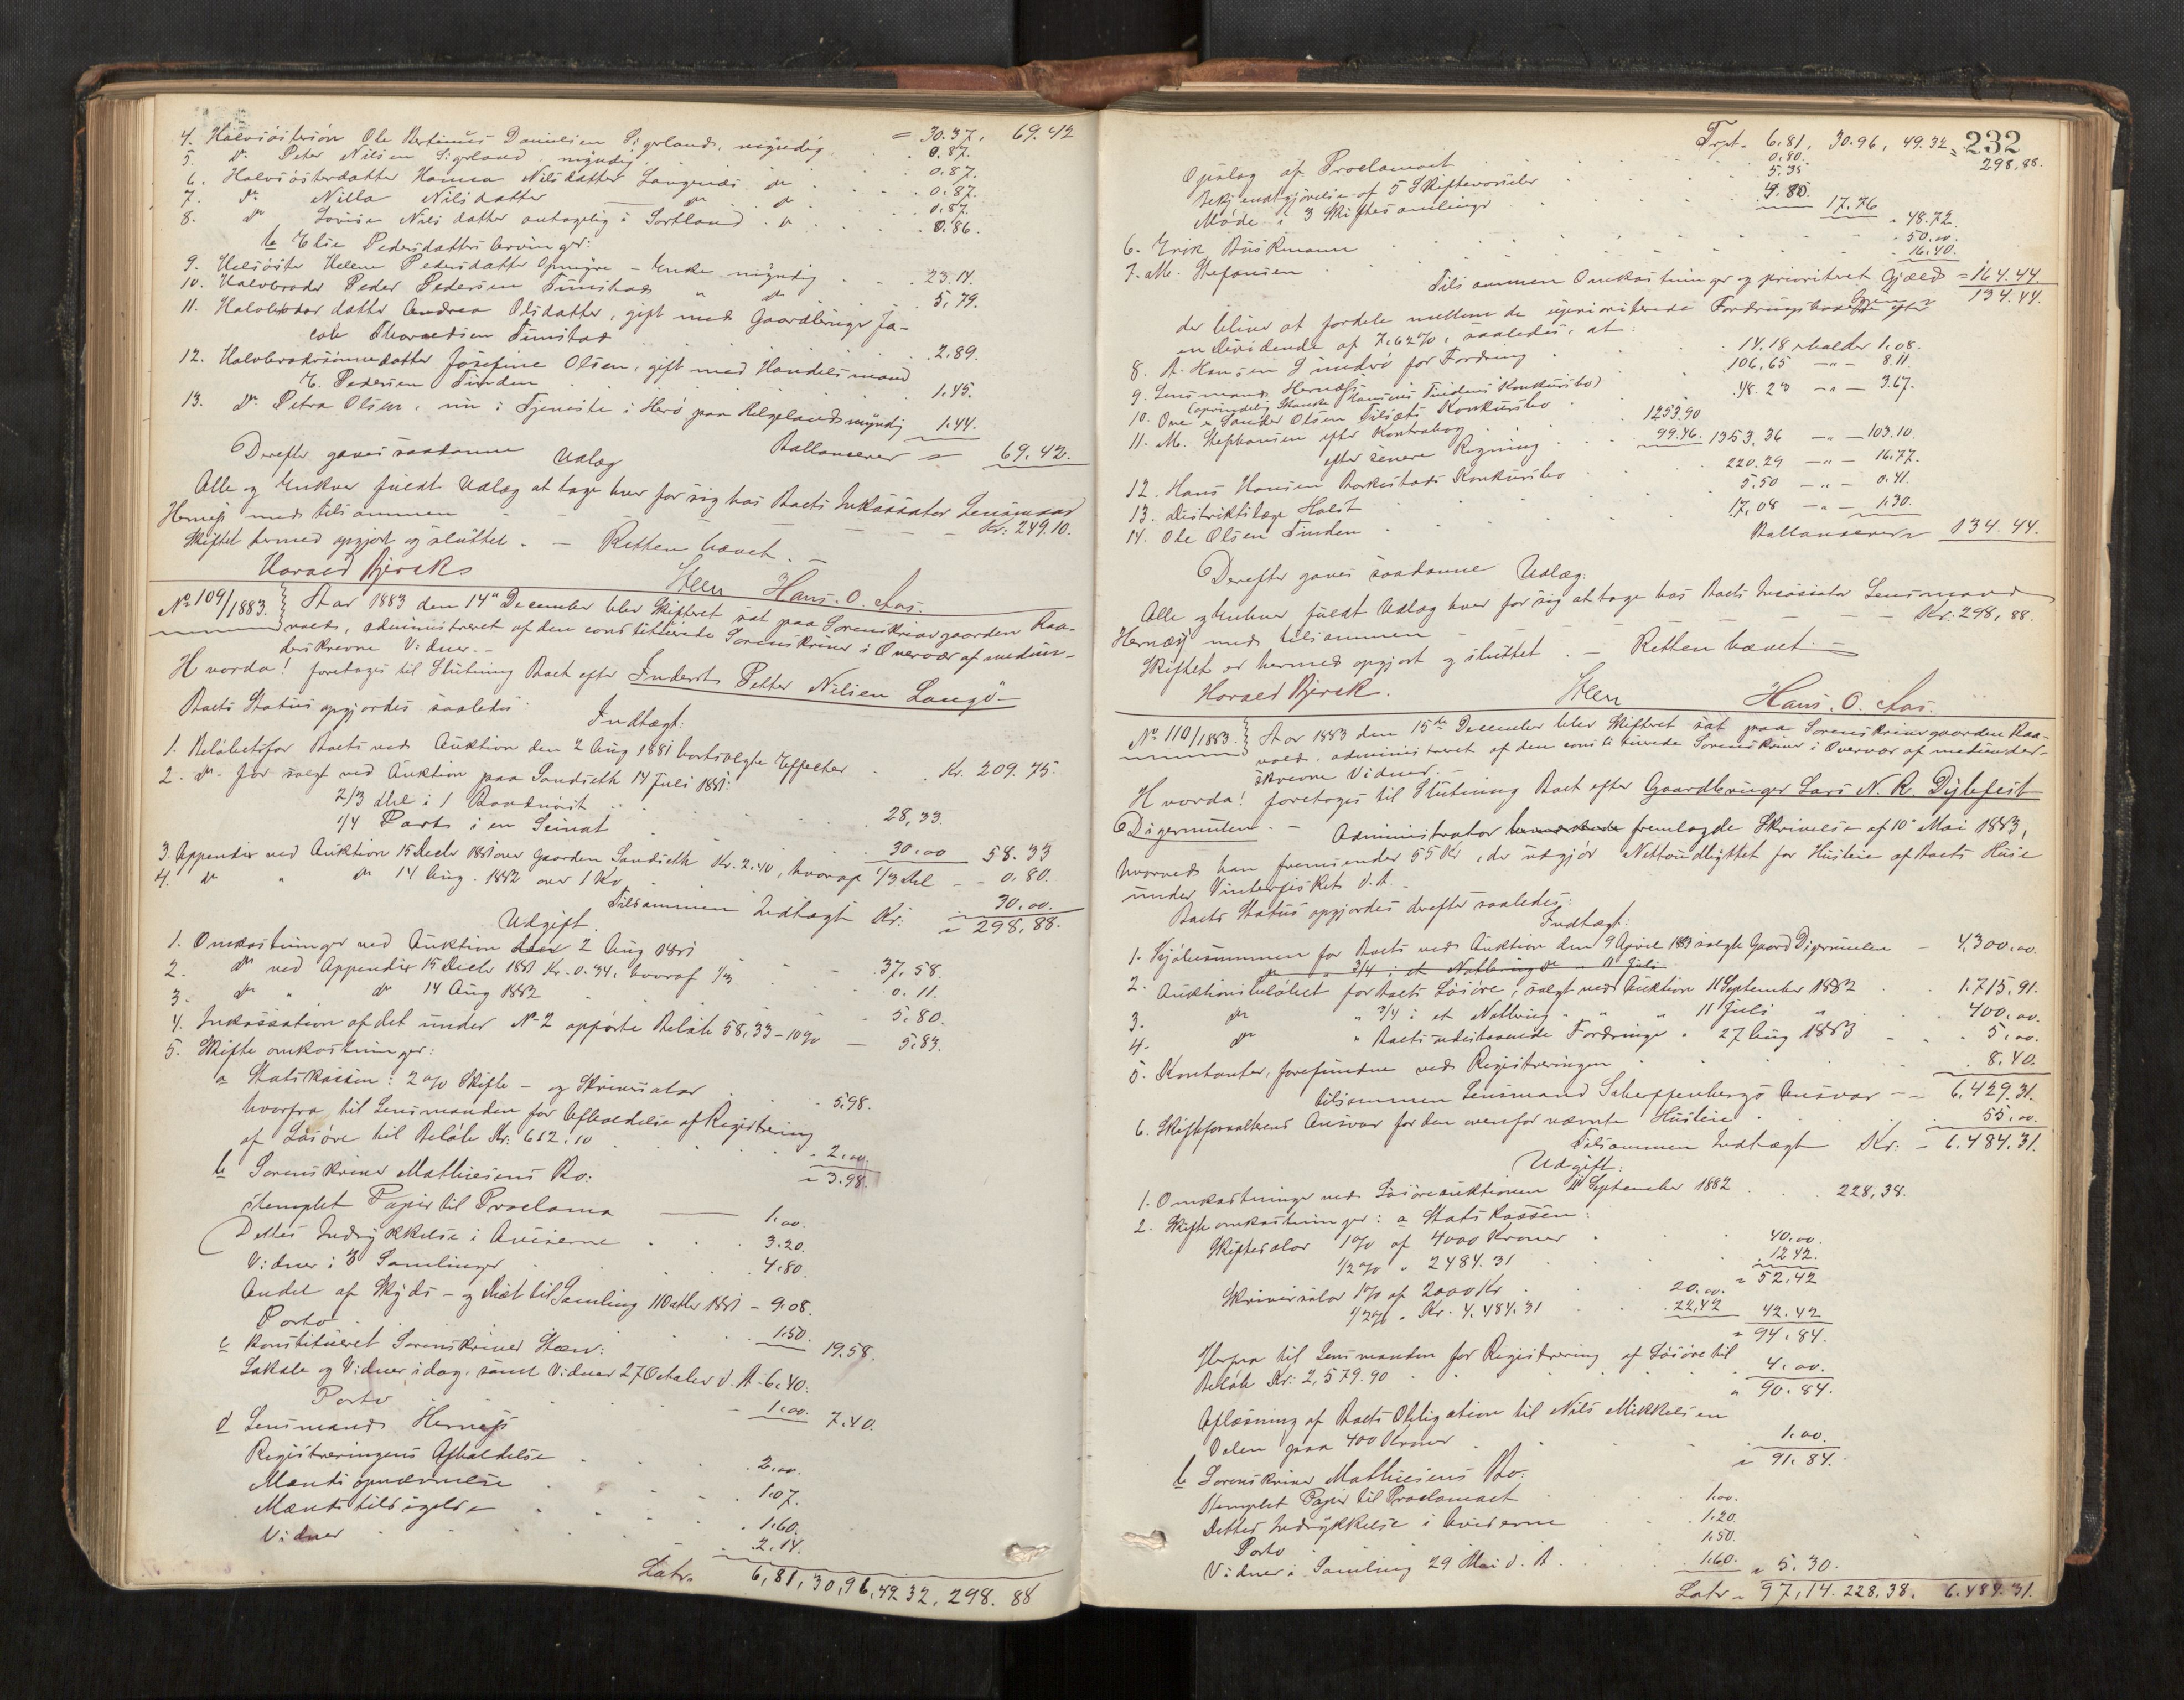 4. Halvsösterson Ole Bertinus Danielsen Sigerland, myndig = 30.37. 69.42
0.87.
5. Do Peter Nilsen Sigerland, myndig . . 0.87.
6. Halvsösterdatter Hanna Nilsdatter Langenæs do . . 0.87.
7. Do Nilla Nilsdatter — do do . . 0.87.
8. Do Lovise Nilsdatter antagelig i Sortland . do . . 0.86.
b Elise Pedersdatters Arvinger:
9. Helsöster Helene Pedersdatter Opmyre - Enke myndig . . 23.14.
10. Halvbroder Peder Pedersen Tunstad " do . . 5.79.
11. Halvbroder datter Andrea Olsdatter, gift med Gaardbruger Ja-
cob Thoraldsen Tunstad . . 2.89.
12. Halvbrodersønnedatter Josefine Olsen, gift med Handelsmand
E. Pedersen Tinden . . 1.45.
13. Do Petra Olsen, nu i Tjeneste i Herö paa Helgeland myndig 1.44.
Ballancerer = 69.42.
Derefter gaves saadanne Udlæg
Alle og Enhver fuldt Udlæg at tage hver for sig hos Boets Inkassator Lensmand
Hernæs med tilsammen — — — — Kr: 249.10.
Skiftet hermed opgjort og sluttet. — Retten hævet. —
Harald Bjerck Steen Hans. O. Aas.
No 109/1883. } Aar 1883 den 14de December blev Skifteret sat paa Sorenskrivergaarden Raa-
vold, administreret af den constituerede Sorenskriver i Overvær af medun-
derskrevne Vidner. —
Hvorda! foretoges til Slutning Boet efter Inderst Petter Nilsen Langö —
Boets Status opgjordes saaledes:
Indtægt:
1. Beløbet for Boets ved Auktion den 2 Aug 1881 bortsolgte Effecter . Kr. 209.75.
2. do for solgt ved Auktion paa Sandseth 14 Juli 1881:
2/3 del i 1 Baadnöst . . 28,33.
1/4 Part i en Seinot . . 30.00 58.33
3. Appendix ved Auktion 15 Decbr 1881 over Gaarden Sandseth Kr. 2.40, hvoraf 1/3 del - - 0.80.
4. do " do 14 Aug. 1882 over 1 Ko . . 30.00.
Tilsammen Indtægt Kr: = 298,88.
Udgift.
1. Omkostninger ved Auktion 2 Aug 1881 . . 37.58.
2. do ved Appendix 15 Decbr 1881 Kr. 0.34, hvoraf 1/3 . . 0.11.
3. do " do 14 Aug 1882 . . 5.80.
4. Inkassation af det under No 2 opførte Beløb 58,33 - 10% — 5.83.
5. Skifteomkostninger:
a Statskassen: 2 % Skifte- og Skriversalær . . 5.98.
hvorfra til Lensmanden for Afholdelse af Registrering
af Løsøre til Beløb Kr: 612.10 . . 2.00.
= 3.98.
b Sorenskriver Mathiesens Bo:
stemplet Papir til Proclama — 1.00.
Dettes Indrykkelse i Aviserne . . 3.20.
Vidner i 3 Samlinger . . 4.80.
Andel af Skyds- og Diæt til Samling 11 Octbr 1881 - 9.08.
Porto . . 1.50. 19.58.
c Konstitueret Sorenskriver Steen:
Lokale og Vidner idag, samt Vidner 27 October d. A. 6.40.
Porto . . 1.00. 7.40.
d Lensmand Hernæs
Registreringens Afholdelse . . 2.00.
Mændsopnævnelse . . 1.07.
Mændstilsigelse . . 1.60.
Vidner . . 2.14.
Latr. 6,81, 30,96, 49.32, 298.88
232
Trpt. 6.81, 30.96, 49.32 = 298,88.
Opslag af Proclamaet . . 0.80.
Bekjendtgjørelse af 5 Skiftevarsler . . 5.35
Møde i 3 Skiftesamlinger . . 4.80. 17.76 = 48.72
6. Erik Buskmann . . 50.00.
7. M. Stefansen . . 16.40.
Tilsammen Omkostninger og prioriteret Gjæld = 164.44.
134.44.
der bliver at fordele mellem de uprioriterede Fordringshavere efter
en Dividende af 7,62%, saaledes, at:
8. A. Hansen Gundrö for Fordring . . 14.18 erholder 1.08.
9. Lensmand Hernæs . . 106,65 —"— 8.11.
10. Ove & Sander Olsen Tilsæts Konkursbo . . 48.23 —"— 3.67.
11. M. Stephansen efter Kontrabog . . 1253.90
efter senere Regning . . 99.46. 1353,36 —"— 103.10.
12. Hans Hansen Barkestads Konkursbo . . 220.29 —"— 16.77.
13. Distriktslæge Holst . . 5,50 —"— 0.41.
14. Ole Olsen Tinden . . 17,08 —"— 1.30.
Ballancerer = 134.44.
Derefter gaves saadanne Udlæg:
Alle og Enhver fuldt Udlæg hver for sig at tage hos Boets Incassator Lensmand
Hernæs med tilsammen — — — — Kr: 298,88.
Skiftet er hermed opgjort og sluttet. — Retten hævet. —
Harald Bjerck. Steen Hans. O. Aas.
No 110/1883. } Aar 1883 den 15de December blev Skifteret sat paa Sorenskrivergaarden Raa-
vold, administreret af den constituerede Sorenskriver i Overvær af medunder-
skrevne Vidner. —
Hvorda! foretoges til Slutning Boet efter Gaardbruger Lars N. R. Dybfest
Digermulen. — Administrator fremlagde Skrivelse af 10de Mai 1883,
hvorved han fremsender 55 Kr, der udgjør Nettoudbyttet for Husleie af Boets Huse
under Vinterfisket d. A. —
Boets Status opgjordes derefter saaledes:
Indtægt:
1. Kjøbesummen for Boets ved Auktion den 9 April 1883 solgte Gaard Digermulen — 4,300.00.
do " 3/4 i et Notbrug do " 11 Juli
2. Auktionsbeløbet for Boets Løsøre, solgt ved Auktion 11 September 1882 . . 1.715,91.
3. do " 3/4 i et Notbrug " " 11 Juli " . . 400.00.
4. do " Boets udestaaende Fordringer " 27 Aug 1883 . . 5.00.
5. Kontanter, forefundne ved Registreringen . . 8.40.
tilsammen Lensmand Scheppenbergs Ansvar — = 6.429.31.
6. Skifteforvalterens Ansvar for den ovenfor nævnte Husleie . . 55.00.
Tilsammen Indtægt Kr: = 6.484.31.
Udgift:
1. Omkostninger ved Løsøreauktionen 11 September 1882 . . 228,38.
2. Skifteomkostninger: a Statskassen:
Skiftesalær 1% af 4000 Kroner . . 40.00.
1/2% " 2484.31 . . 12.42.
= 52.42
Skriversalær 1% af 2000 Kr . . 20.00.
1/2% " Kr. 4.484.31 . . 22,42 42.42
= 94.84.
Herfra til Lensmanden for Registrering af Løsøre til
Beløb Kr: 2,579.90 . . 4.00.
" 90.84.
Aflæsning af Boets Obligation til Nils Mikkelsen
Valen paa 400 Kroner . . 1.00.
= 91.84.
b Sorenskriver Mathiesens Bo:
Stemplet Papir til Proclamaet . . 1.00.
Dettes Indrykkelse i Aviserne . . 1.20.
Porto . . 1.50.
Vidner i Samling 29 Mai d. A. . . 1.60. = 5.30.
Latr = 97,14. 228,38. 6.484.31.